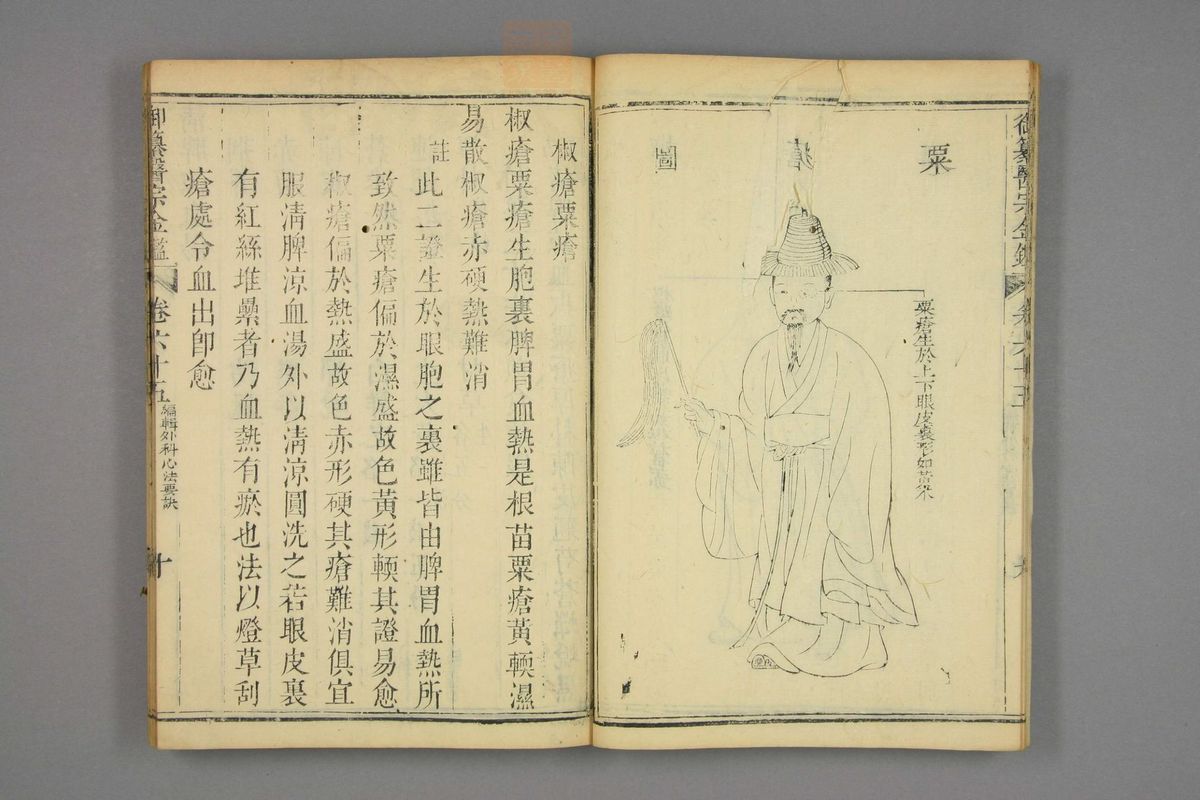 御纂醫宗金鑑
卷六十五
九
粟瘡圖
粟瘡生於上下眼皮裏形如黃米
椒瘡粟瘡
椒瘡粟瘡生胞裏脾胃血熱是根苗粟瘡黃輭濕
易散椒瘡赤硬熱難消
註
此二證生於眼胞之裏雖皆由脾胃血熱所
致然粟瘡偏於濕盛故色黃形輭其證易愈
椒瘡偏於熱盛故色赤形硬其瘡難消俱宜
服淸脾涼血湯外以淸涼圓洗之若眼皮裏
有紅絲堆纍者乃血熱有瘀也法以燈草刮
瘡處令血出卽愈
御纂醫宗金鑑
卷六十五
編輯外科心法要訣
十